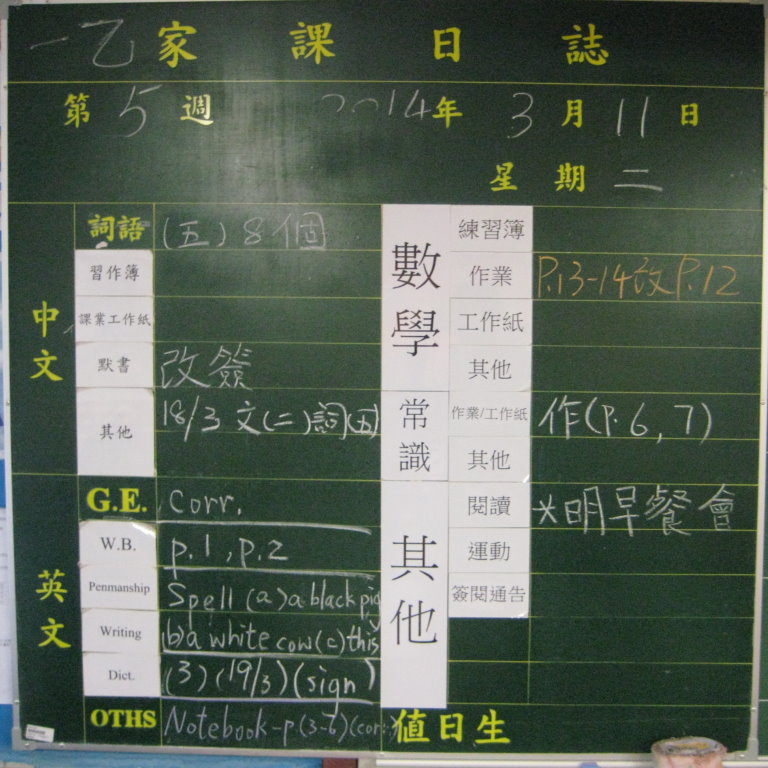 一乙家課日誌
第5週 2014年3月11日
星期二
中文
詞語 (五)8個
習作簿
課業工作紙
默書 改簽
其他 18/3 文(二)詞(五)
英文
G.E. Corr.
W.B. p.1, p.2
Penmanship Spell (a) a black pig
Writing (b) a white cow (c) this
Dict. (3) (19/3) (sign)
OTHS Notebook-p(3-6)(corr.
數學
練習簿
作業 P.13-14改P.12
工作紙
其他
常識
作業/工作紙 作(P.6,7)
其他
其他
閱讀 *明早餐會
運動
簽閱通告
值日生